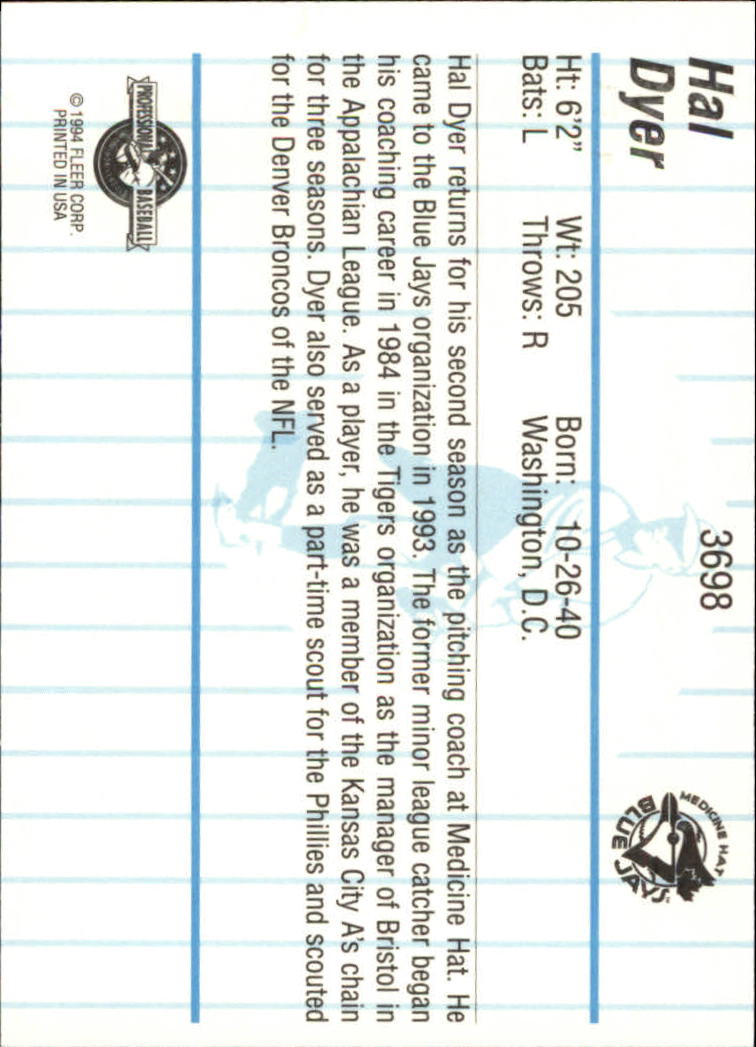 Hal
Dyer
3698
MEDICINE HAT
BLUE JAYS™
Ht: 6'2" Wt: 205 Born: 10-26-40
Bats: L Throws: R Washington, D.C.
Hal Dyer returns for his second season as the pitching coach at Medicine Hat. He
came to the Blue Jays organization in 1993. The former minor league catcher began
his coaching career in 1984 in the Tigers organization as the manager of Bristol in
the Appalachian League. As a player, he was a member of the Kansas City A's chain
for three seasons. Dyer also served as a part-time scout for the Phillies and scouted
for the Denver Broncos of the NFL.
PROFESSIONAL BASEBALL
© 1994 FLEER CORP.
PRINTED IN USA